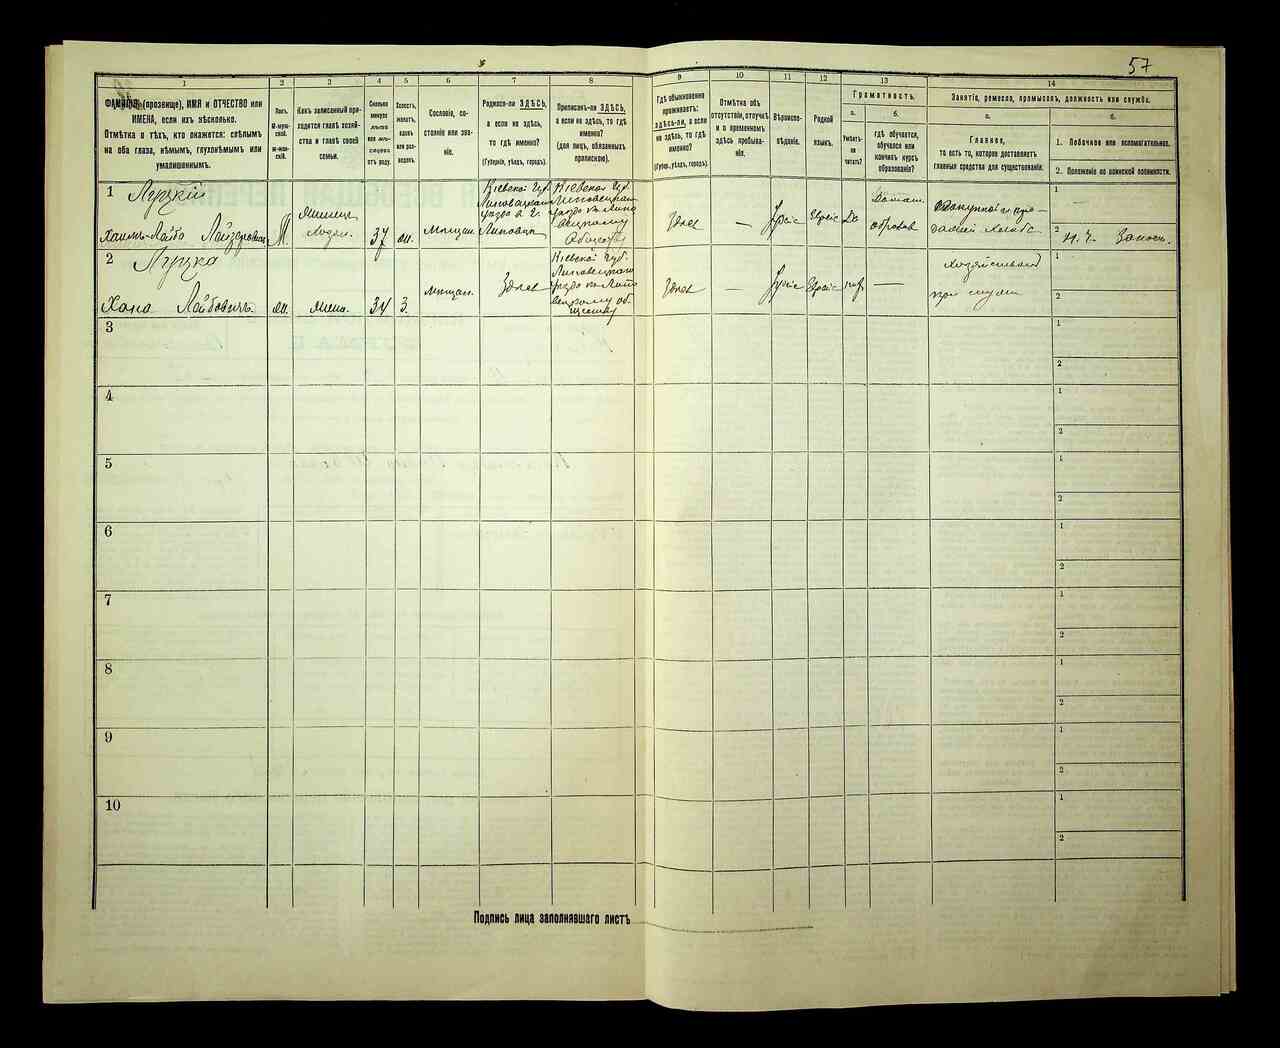 57
1
2
3
4
5
6
7
8
9
10
11
12
13
14
ФАМИЛІЯ (прозвище), ИМЯ и ОТЧЕСТВО или
ИМЕНА, если ихъ нѣсколько.
Отмѣтка о тѣхъ, кто окажется: слѣпымъ
на оба глаза, нѣмымъ, глухонѣмымъ или
умалишеннымъ.
Полъ.
М-муж-
ской.
Ж-жен-
скій.
Какъ записанный при-
ходится главѣ хозяй-
ства и главѣ своей
семьи.
Сколько
минуло
лѣтъ
или мѣ-
сяцевъ
отъ роду.
Холостъ,
женатъ,
вдовъ
или раз-
веденъ.
Сословіе, со-
стояніе или зва-
ніе.
Родился-ли ЗДѢСЬ,
а если не здѣсь,
то гдѣ именно?
(Губернія, уѣздъ, городъ).
Приписанъ-ли ЗДѢСЬ,
а если не здѣсь, то гдѣ
именно?
(для лицъ, обязанныхъ
припискою).
Гдѣ обыкновенно
проживаетъ:
здѣсь-ли, а если
не здѣсь, то гдѣ
именно?
(Губер., уѣздъ, городъ).
Отмѣтка объ
отсутствіи, отлучкѣ
и о временномъ
здѣсь пребыва-
ніи.
Вѣроиспо-
вѣданіе.
Родной
языкъ.
Грамотность.
а.
Умѣетъ-
ли
читать?
б.
гдѣ обучается,
обучался или
кончилъ курсъ
образованія?
Занятіе, ремесло, промыселъ, должность или служба.
а.
Главное,
то есть то, которое доставляетъ
главныя средства для существованія.
б.
1. Побочное или вспомогательное.
2. Положеніе по воинской повинности.
1 Луцкій
Хаимъ-Лейбо Лейзеровичъ
М.
37
Мѣщан.
Кіевской Губ.
Липовецкаго
Кіевской Губ.
Липовецкаго
Здѣсь
—
Іудейс
Еврейс
Да
Домаш.
1
2
2 Луцка
Хана Лейбовичъ.
жена.
34
З.
Мѣщан.
Здѣсь
Кіевской Губ.
Липовецкаго
Здѣсь
—
Іудейс
Еврейс
нѣт
—
при мужѣ
1
2
3
1
2
4
1
2
5
1
2
6
1
2
7
1
2
8
1
2
9
1
2
10
1
2
Подпись лица заполнявшаго листъ